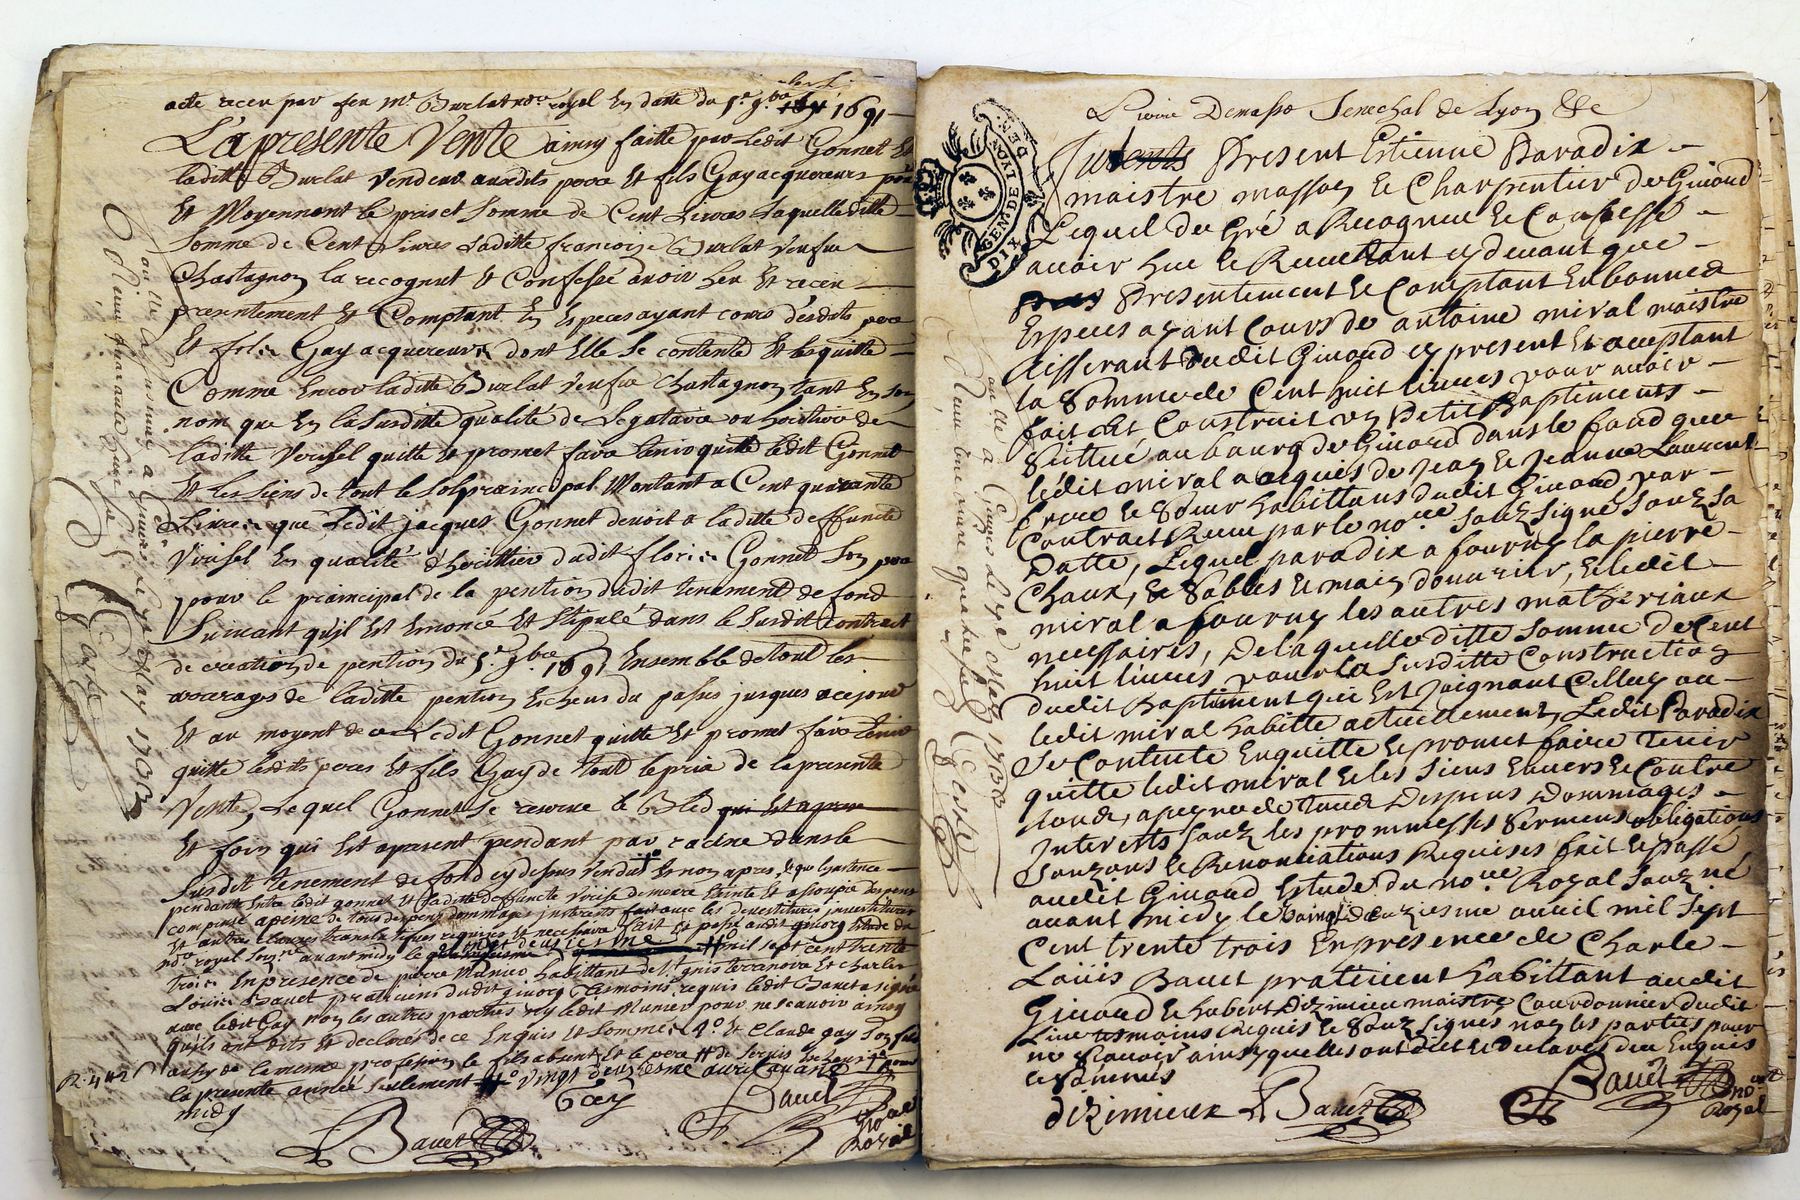 acte receu par feu Mr Burlat no.re royal En datte du 5e 9.bre 1691
La presente Vente ainsy faitte par Ledit Gonnet Et
laditte Burlat Vendeur ausdits pere Et fils Gay acquereurs pour
Et Moyennant le prix et Somme de Cent Livres Laquelle ditte
Somme de Cent Livres Laditte francoise Burlat Veufve
Chastagnon la recognut Et Confessé avoir heu Et receu
presentement Et Comptant En Especes ayant cours desdits pere
Et fils Gay acquereurs dont Elle Se contente Et les quitte
Comme Encor laditte Burlat Veufve Chastagnon tant En son
nom que En la Susditte qualité de Legataire ou heritiere de
laditte quitte Et promet faire tenir quitte ledit Gonnet
Et les Siens de tout le Sol principal Montant a Cent quarante
Livres que Ledit jacques Gonnet devoit a laditte deffuncte
En qualité d'heritier dudit Gonnet Son pere
pour le principal de la pention dudit tenement de fond
Suivant qu'il Est Enoncé Et Stipulé dans le Susdit Contract
de creation de pention du 5e 9.bre 1691 Ensemble de tout les
arrerages de laditte pention Escheus du passé jusques a ce jour
Et au moyent de ce Ledit Gonnet quitte Et promet faire tenir
quitte lesdits peres Et fils Gay de tout le prix de la presente
Vente, Lequel Gonnet Se reserve le Bled qui Est apren
Et foin qui Est apresent pendant par racine dans le
Susdit tenement de fond cy dessus Vendu Et non apres,
pendante Entre ledit Gonnet Et laditte deffuncte
compensé a peine de tous despens dommages interests fait avec les devestitures investitures
Et autres Clauses translatives requises Et necessaire fait Et passé audit givors Estude du
no.re royal Soussigné avant midy le mil sept cent trente
trois En presence de pierre Munier habittant de Et Charles
Louis Bauet praticiens dudit givors Tesmoins requis ledit Bauet a signé
avec ledit Gay non les autres parties ny ledit Munier pour ne scavoir ainsy
qu'ils ont dits Et declares de ce Enquis Et Sommés Et Claude gay Son fils
aussy de la meme profession le fils absent Et le pere
la presente année Seulement vingt deuxiesme avril avant
midy
Gay
Bauet
Bauet
no.re
Royal
R. 442
Pierre Demasso Senechal de Lyon &c
Present Estienne Paradix
maistre masson Et Charpentier de Givord
Lequel de Gré a Recognu Et Confessé
avoir heu Et Receu tant cy devant que
Presentement Et Comptant En bonnes
Especes ayant Cours de antoine miral maistre
tisserant dudit Givord cy present Et acceptant
la Somme de Cent huit livres pour avoir
fait Et Construit un Petit Baptiments
Scittué au bourg de Givord dans le fond que
ledit miral a acquis de Jean Et Jeanne Laurent
frere Et Soeur habittans dudit Givord par
Contract Receu par le no.re Souz Signé Souz Sa
Datte, Lequel paradix a fourny la pierre
Chaux, Et Sables Et main douvrier, Et ledit
miral a fourny les autres matheriaux
necessaires, De laquelle ditte Somme de Cent
huit livres pour la Susditte Construction
dudit Baptiment qui Est Joignant Celluy ou
ledit miral habitte actuellement, Ledit Paradix
Se Contente En quitte Et promet faire Tenir
quitte ledit miral Et les Siens Envers Et Contre
Tous, a peyne de Tous Despens Dommages
Interests Souz les prommesses Sermens obligations
Souzmis Et Renonciations Requises fait Et passé
audit Givord Estude du no.re Royal Souz.né
avant midy le vingt deuziesme avril mil Sept
Cent trente trois En presence de Charle
Louis Bauet praticient habittant audit
Givord Et hubert Dizimieu maistre Courdonnier dudit
Lieu tesmoins Requis Et Souz Signes non les parties pour
ne Scavoir ainsy quelles ont dit Et declaré de ce Enquis
Et Sommés
dizimieux
Bauet
Bauet
no.re
Royal
DIX DEN.
GEN. DE LYON